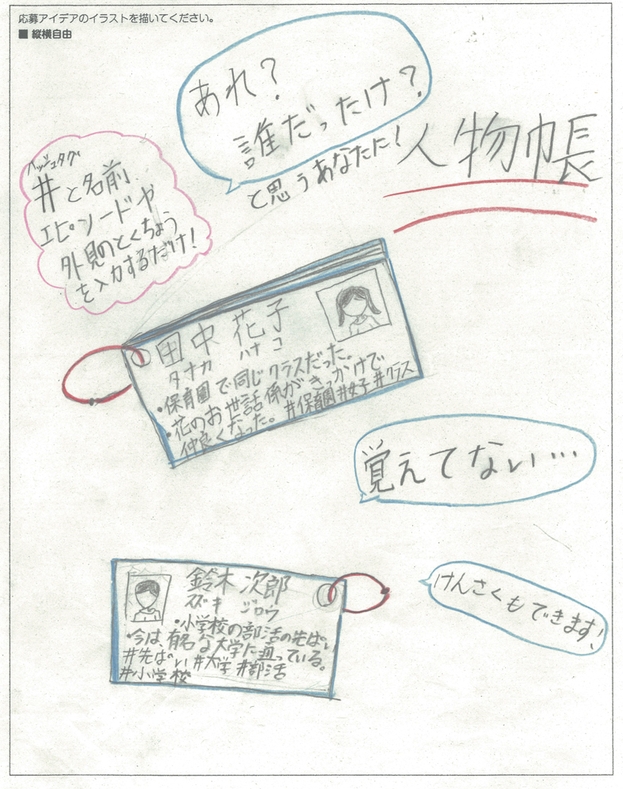 応募アイデアのイラストを描いてください。
■ 縦横自由
あれ？
誰だったけ？
と思うあなたに！
人物帳
ハッシュタグ
#と名前、
エピソードや
外見のとくちょう
を入力するだけ！
田中 花子
タナカ ハナコ
・保育園で同じクラスだった。
・花のお世話係がきっかけで
仲良くなった。#保育園#女子#クラス
覚えてない…
鈴木 次郎
スズキ ジロウ
・小学校の部活の先ぱい
・今は、有名な大学に通っている。
#先ぱい #大学 #部活
#小学校
けんさくもできます！